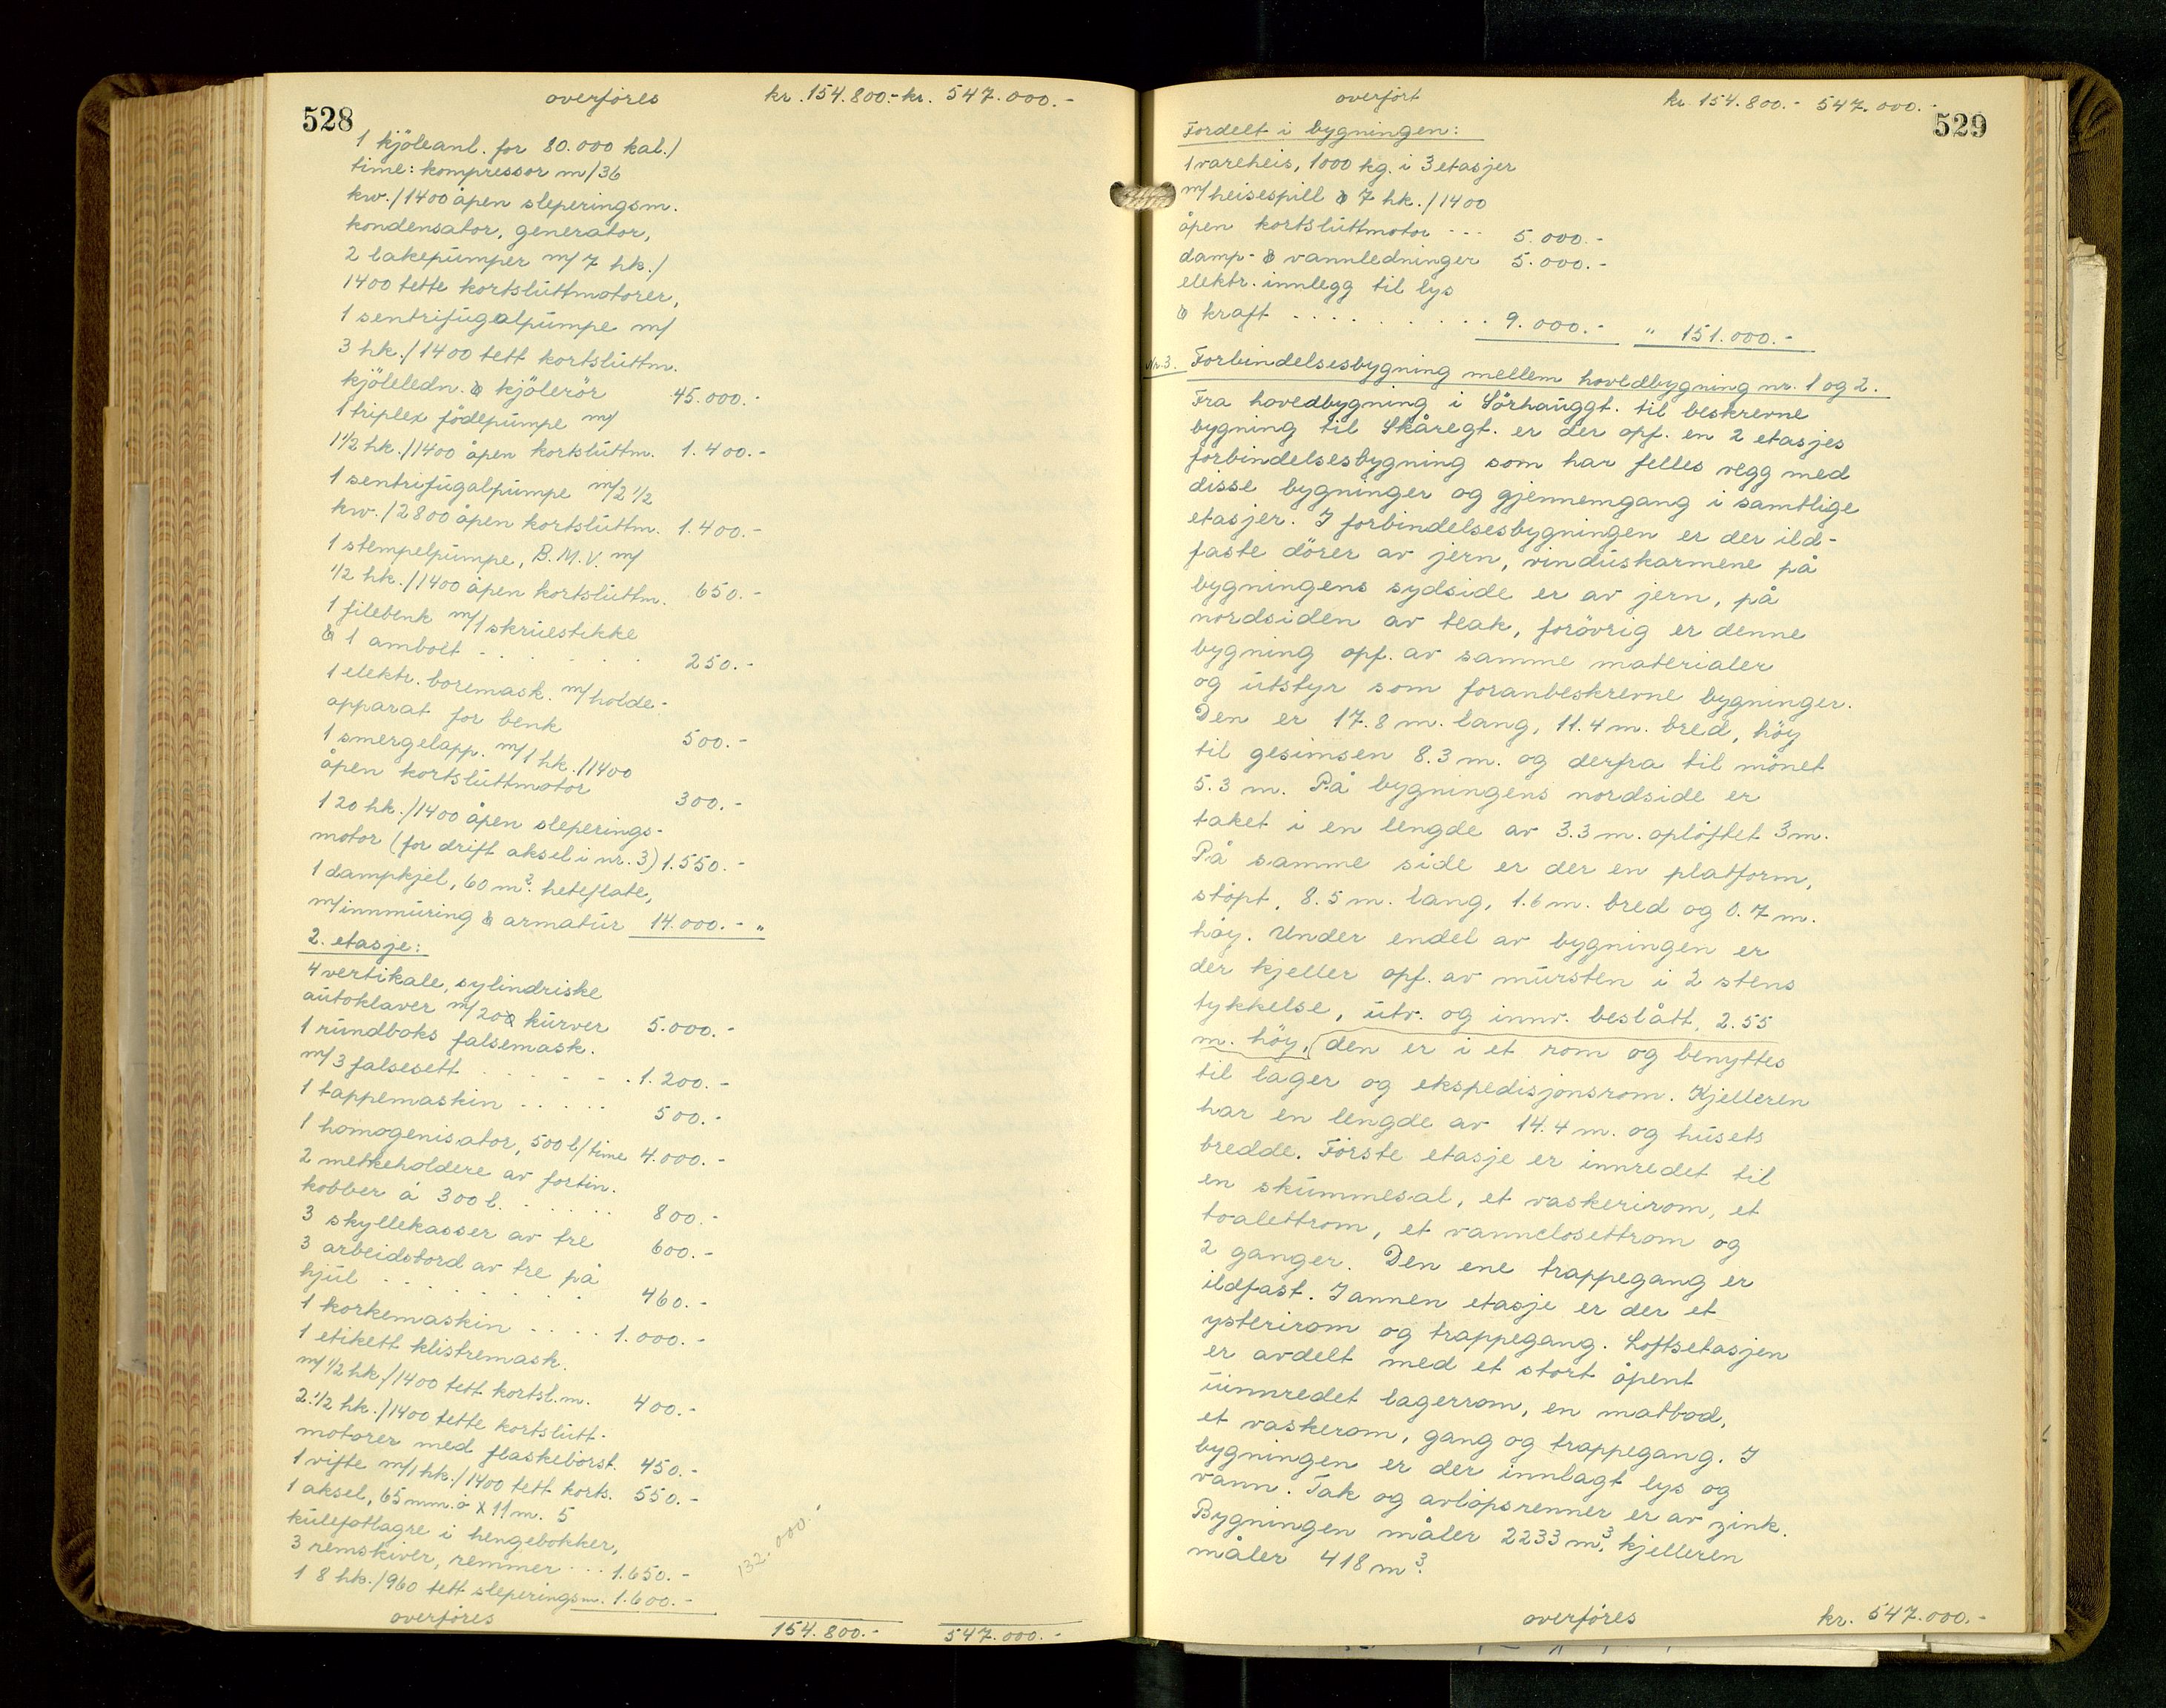 528
overføres kr. 154.800.- kr. 547.000.-
1 kjöleanl. for 80.000 kal./
time: kompressor m/36
kw./1400 åpen sleperingsm.
kondensator, generator,
2 lakepumper m/7 hk./
1400 tette kortsluttmotorer,
1 sentrifugalpumpe m/
3 hk./1400 tett kortsluttm.
kjöleledn. & kjölerör 45.000.-
1 triplex födepumpe m/
1½ hk./1400 åpen kortsluttm. 1.400.-
1 sentrifugalpumpe m/2½
kw./2800 åpen kortsluttm. 1.400.-
1 stempelpumpe, B.M.V. m/
½ hk./1400 åpen kortsluttm. 650.-
1 filebenk m/1 skruestikke
& 1 ambolt - . . . . . 250.-
1 elektr. boremask. m/holde-
apparat for benk 500.-
1 smergelapp. m/1 hk./1400
åpen kortsluttmotor 300.-
1 20 hk./1400 åpen sleperings-
motor (for drift aksel i nr. 3) 1.550.-
1 dampkjel, 60 m². heteflate,
m/innmuring & armatur 14.000.- "
2. etasje:
4 vertikale, sylindriske
autoklaver m/200 kurver 5.000.-
1 rundboks falsemask.
m/3 falsesett . . . . . . 1.200.-
1 tappemaskin . . . . . 500.-
1 homogenisator, 500 l/time 4.000.-
2 melkeholdere av fortin.
kobber á 300 l. . . . . . 800.-
3 skyllekasser av tre 600.-
3 arbeidsbord av tre på
hjul . . . . . . . 460.-
1 korkemaskin . . . . 1.000.-
1 etikett klistremask.
m/½ hk./1400 tett kortsl.m. 400.-
2 ½ hk./1400 tette kortslutt-
motorer med flaskebörst. 450.-
1 vifte m/1 hk./1400 tett korts. 550.-
1 aksel, 65 mm. ö x 11 m. 5
kulefotlagre i hengebokker,
3 remskiver, remmer . . . 1.650.-
1 8 hk./960 tett sleperingsm. 1.600.-
132.000.-
overföres 154.800.- 547.000.-
529
overfört kr. 154.800.- 547.000.-
Fordelt i bygningen:
1 vareheis, 1000 kg. i 3 etasjer
m/heisespill & 7 hk./1400
åpen kortsluttmotor - - - 5.000.-
damp- & vannledninger 5.000.-
elektr. innlegg til lys
& kraft . . . . . . . . . 9.000.- " 151.000.-
Nr. 3. Forbindelsesbygning mellem hovedbygning nr. 1 og 2.
Fra hovedbygning i Sörhauggt. til beskrevne
bygning til Skåregt. er der opf. en 2 etasjes
forbindelsesbygning som har felles vegg med
disse bygninger og gjennemgang i samtlige
etasjer. I forbindelsesbygningen er der ild-
faste dörer av jern, vinduskarmene på
bygningens sydside er av jern, på
nordsiden av teak, forövrig er denne
bygning opf. av samme materialer
og utstyr som foranbeskrevne bygninger.
Den er 17.8 m. lang, 11.4 m. bred, höy
til gesimsen 8.3 m. og derfra til mönet
5.3 m. På bygningens nordside er
taket i en lengde av 3.3 m. oplöftet 3 m.
På samme side er der en platform,
stöpt, 8.5 m. lang, 1.6 m. bred og 0.7 m.
höy. Under endel av bygningen er
der kjeller opf. av mursten i 2 stens
tykkelse, utv. og innv. beslått, 2.55
m. höy, den er i et rom og benyttes
til lager og ekspedisjonsrom. Kjelleren
har en lengde av 14.4 m. og husets
bredde. Förste etasje er innredet til
en skummesal, et vaskerirom, et
toalettrom, et vannclosettrom og
2 ganger. Den ene trappegang er
ildfast. I annen etasje er der et
ysterirom og trappegang. Loftsetasjen
er avdelt med et stort åpent
uinnredet lagerrom, en matbod,
et vaskerom, gang og trappegang. I
bygningen er der innlagt lys og
vann. Tak og avlöpsrenner er av zink.
Bygningen måler 2233 m³, kjelleren
måler 418 m³.
overföres kr. 547.000.-